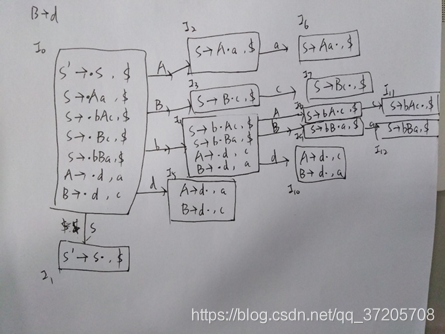 B→d
I0
S'→·S , $
S→·Aa , $
S→·bAc , $
S→·Bc , $
S→·bBa , $
A→·d , a
B→·d , c
S
I1
S'→S· , $
A
I2
S→A·a , $
a
I6
S→Aa· , $
B
I3
S→B·c , $
c
I7
S→Bc· , $
b
I4
S→b·Ac , $
S→b·Ba , $
A→·d , c
B→·d , a
A
I8
S→bA·c , $
c
I11
S→bAc· , $
B
I9
S→bB·a , $
a
S→bBa· , $
I12
d
A→d· , c
B→d· , a
I10
d
I5
A→d· , a
B→d· , c
https://blog.csdn.net/qq_37205708